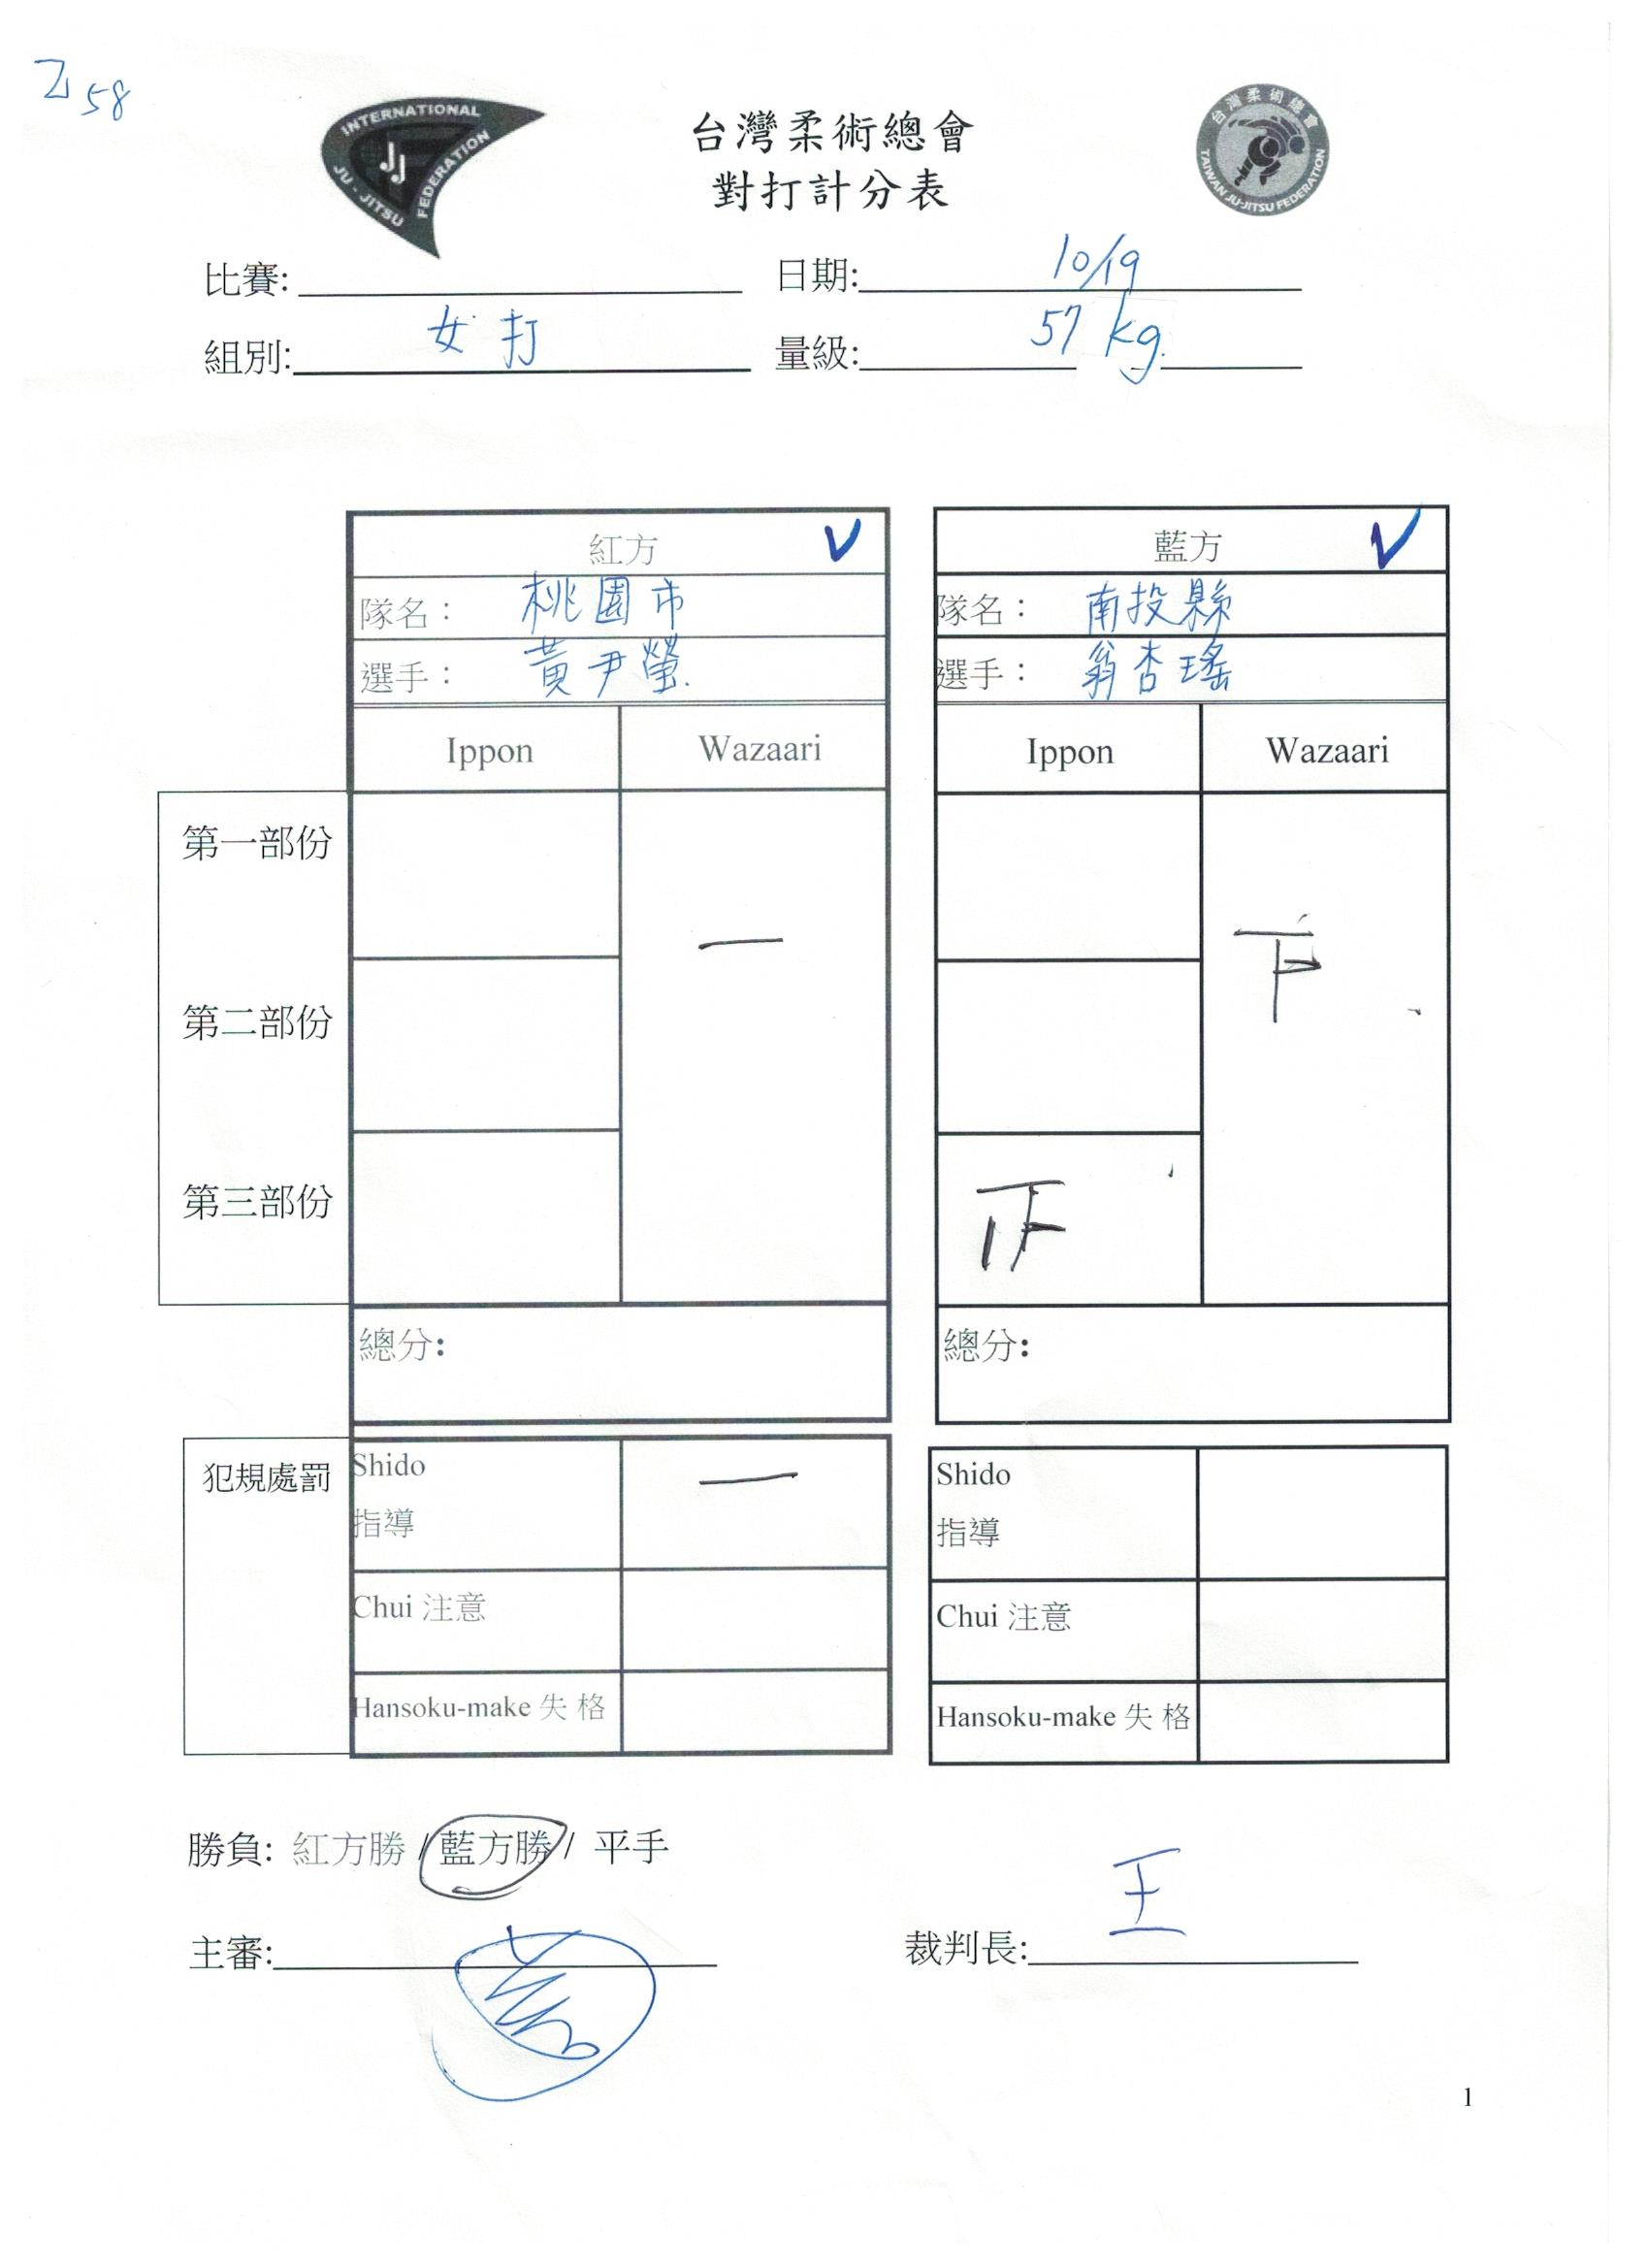 乙58
INTERNATIONAL JU-JITSU FEDERATION
JJ
台灣柔術總會
TAIWAN JU-JITSU FEDERATION
台灣柔術總會
對打計分表
比賽: 日期: 10/19
組別: 女打 量級: 57 kg.
紅方 V 藍方 V
隊名： 桃園市 隊名： 南投縣
選手： 黃尹瑩. 選手： 翁杏瑤
Ippon Wazaari Ippon Wazaari
第一部份
一 下
第二部份
第三部份
總分: 總分:
犯規處罰 Shido 一 Shido
指導 指導
Chui 注意 Chui 注意
Hansoku-make 失 格 Hansoku-make 失 格
勝負: 紅方勝 / 藍方勝 / 平手
主審: 裁判長: 王
1